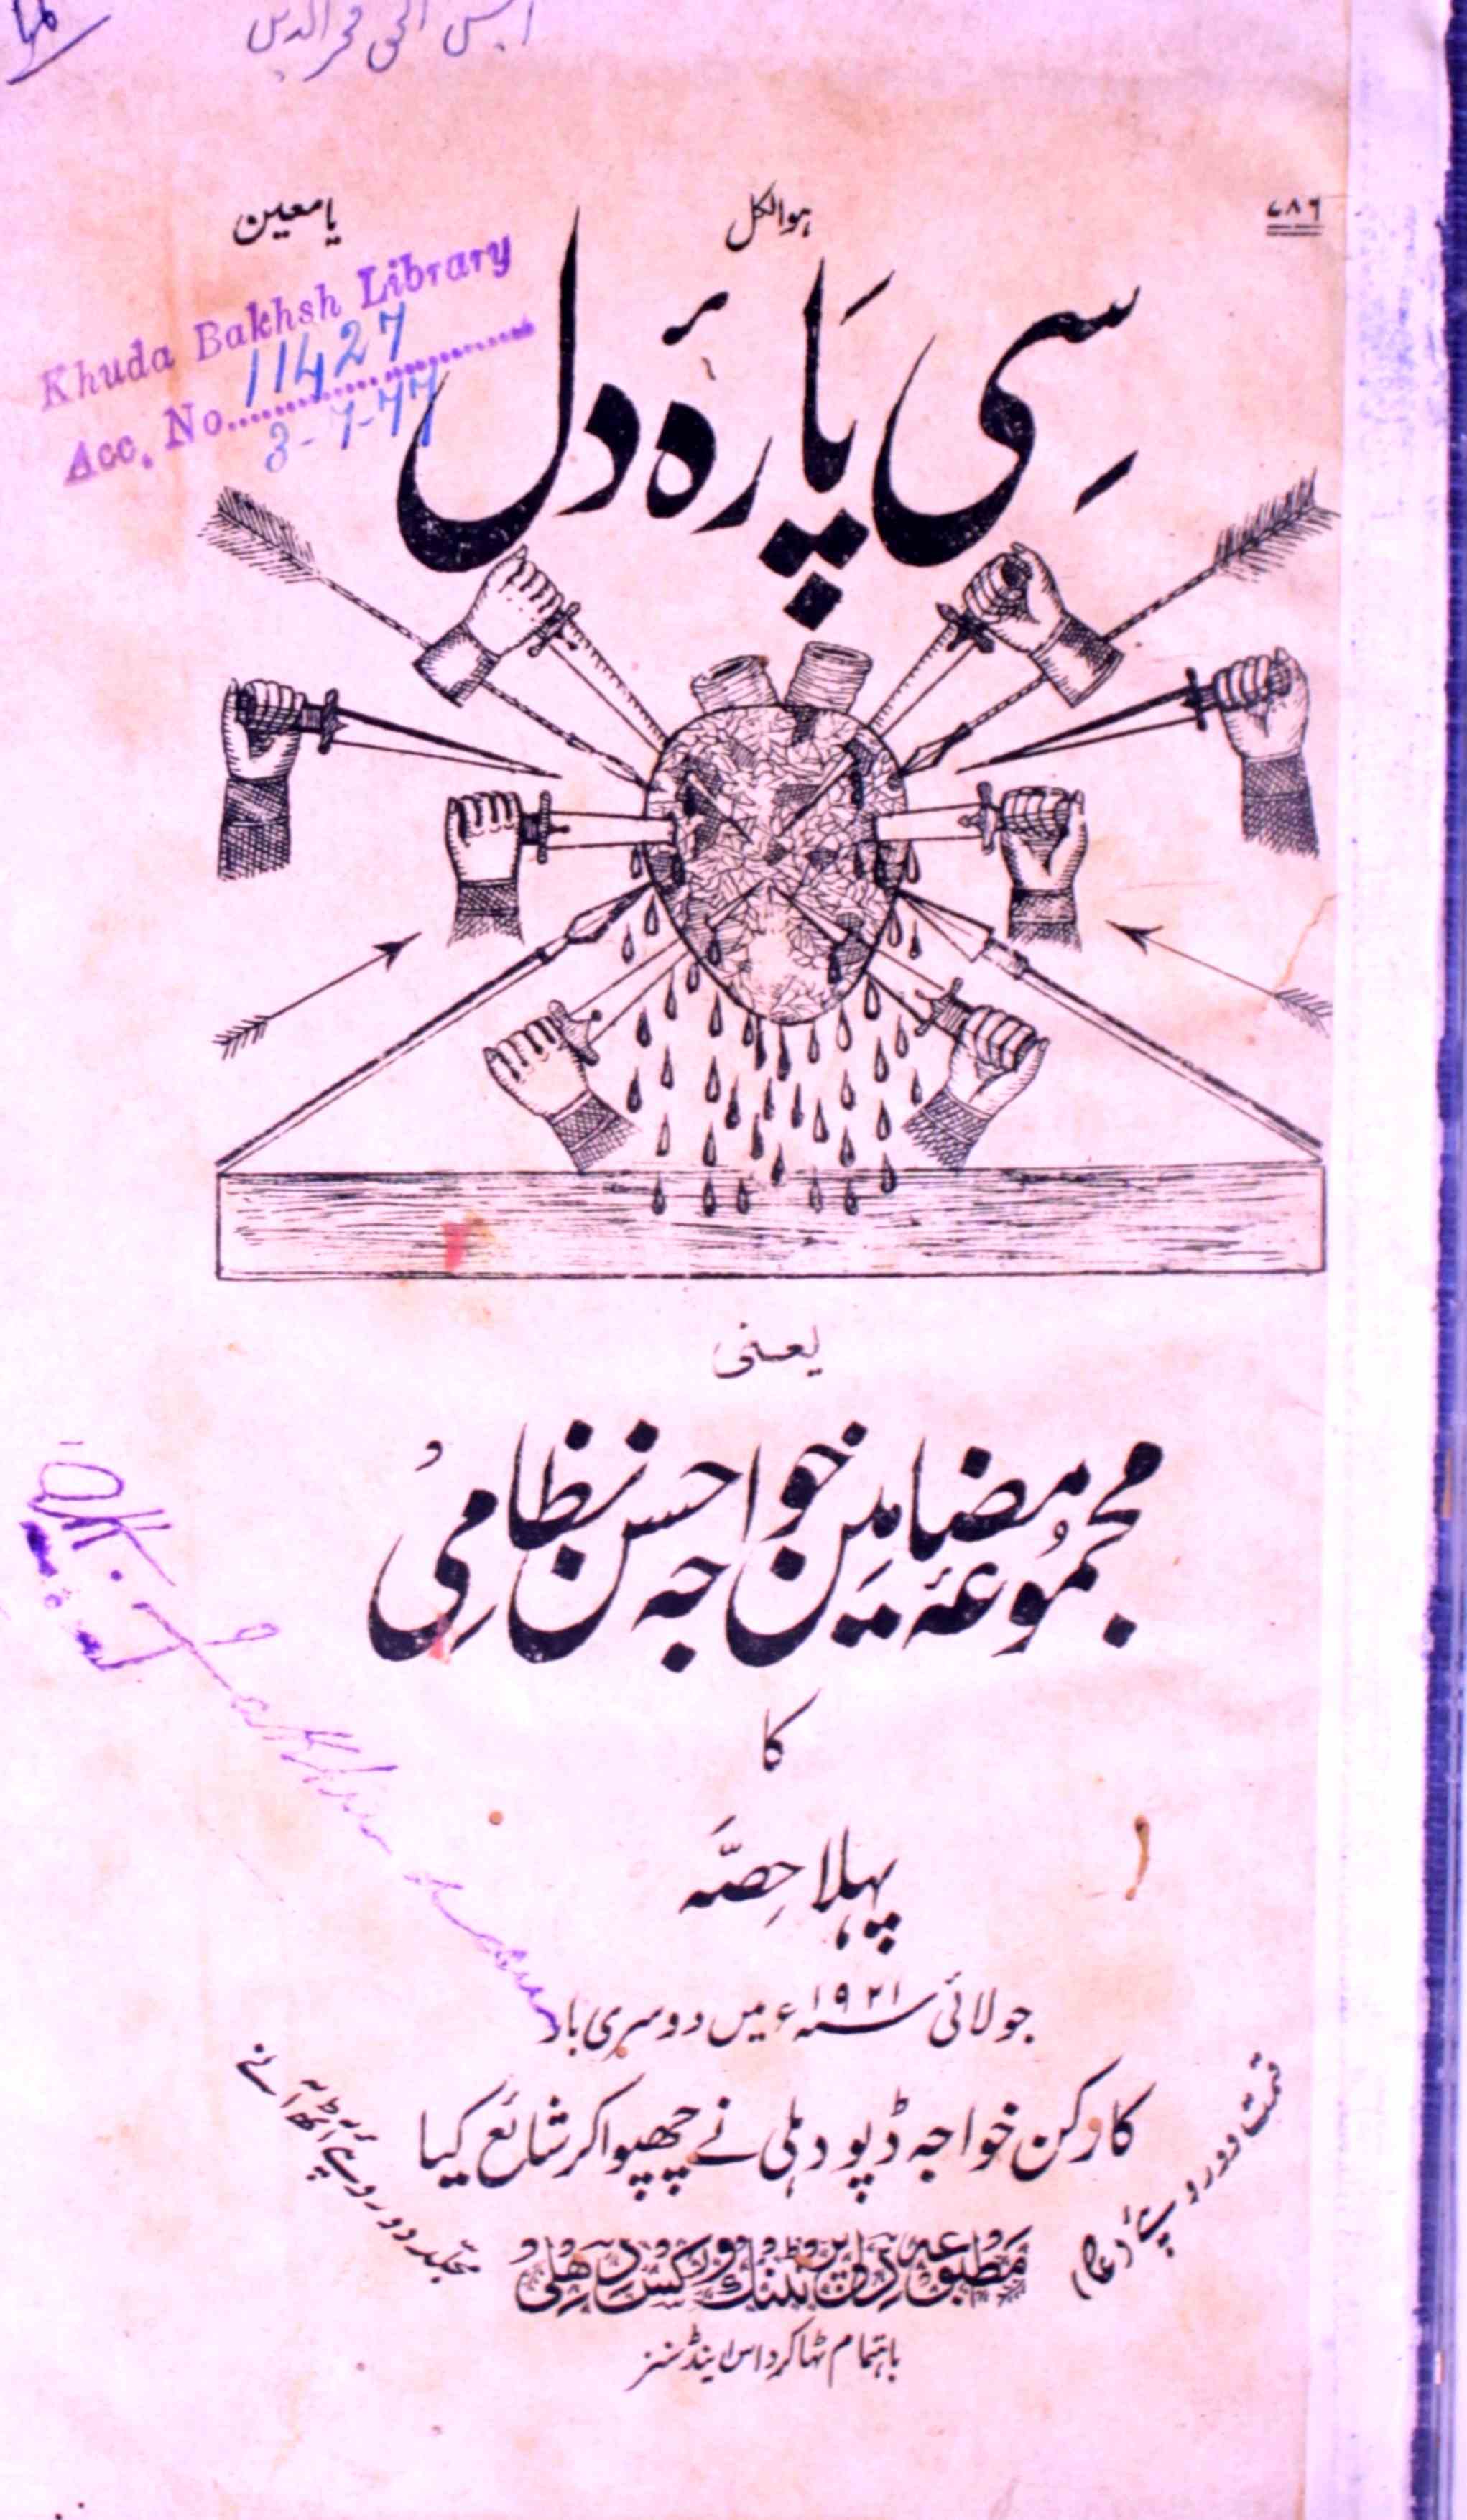 ۷۸۶
ھوالکل
یا معین
Khuda Bakhsh Library
Acc. No. 11427
3-7-77
سِی پَارۂ دل
یعنی
مجموعۂ مضامین خواجہ حسن نظامی
کا
پہلا حصّہ
جولائی سنہ ۱۹۲۱ء میں دوسری بار
کارکن خواجہ ڈپو دہلی نے چھپوا کر شائع کیا
قیمت دو روپیے
مجلد دو روپے آٹھ آنے
مطبوعہ دلی پرنٹنگ ورکس دہلی
باہتمام ٹھاکر داس اینڈ سنز